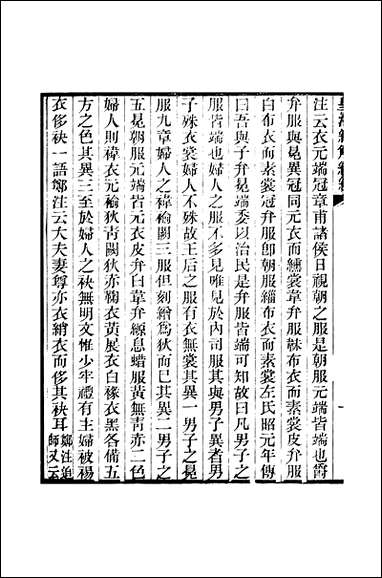 注云衣元端冠章甫諸侯日視朝之服是朝服元端皆端也爵
弁服與冕異冠同元衣而纁裳韋弁服韎布衣而素裳皮弁服
白布衣而素裳冠弁服卽朝服緇布衣而素裳左氏昭元年傳
曰吾與子弁冕端委以治民是弁服皆端可知故曰凡男子之
服皆端也婦人之服不多見唯見於內司服其與男子異者男
子殊衣裳婦人不殊故王后之服有衣無裳其異一男子之冕
服九章婦人之褘褕闕三服但刻繒爲狄而已其異二男子之
五冕朝服元端皆元衣皮弁白韋弁縓息蜡服黃無靑亦二色
婦人則褘衣元褕狄靑闕狄赤鞠衣黃展衣白褖衣黑各備五
方之色其異三至於婦人之袂無明文惟少牢禮有主婦被裼
衣侈袂一語鄭注云大夫妻尊亦衣綃衣而侈其袂耳鄭注追師又云